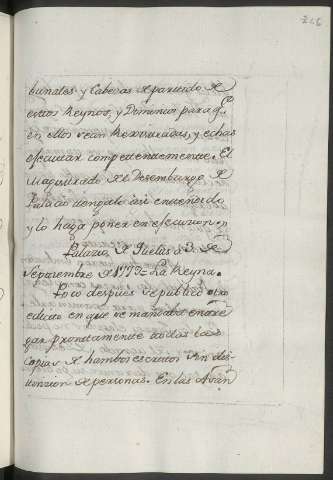 246
bunales y Cabezas de partido de
estos Reynos, y Dominios para qe.
en ellos sean Rexistradas, y echas
executar competentemente. El
Magistrado de el Desembargo de
Palacio tengalo asi entendido
y lo haga poner en execucion.
Palacio de Queluz a 3 de
Septiembre de 1779 = La Reyna.
Poco despues se publicó otro
edicto en que se mandaba entre
gar prontamente todas las
copias de hambos escritos sin dis-
tincion de personas. En las